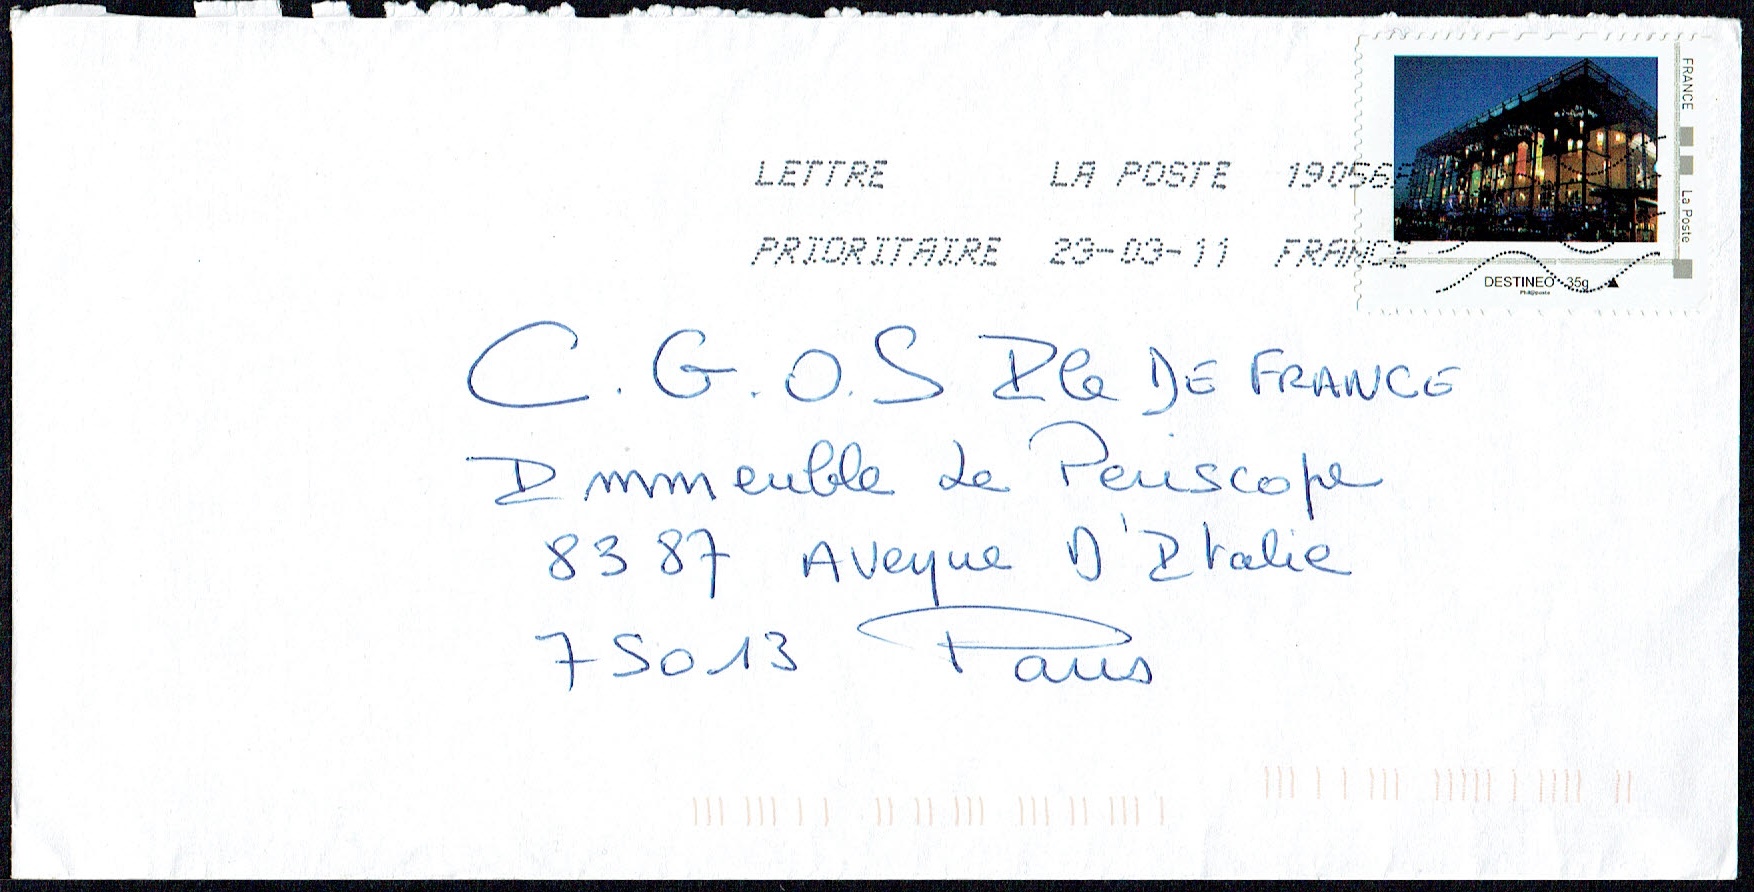 LETTRE LA POSTE 19056A
PRIORITAIRE 23-03-11 FRANCE
FRANCE La Poste
DESTINEO 35g
Phil@poste
C.G.O.S Ile DE FRANCE
Immeuble Le Periscope
83 87 Avenue D'Italie
75013 Paris